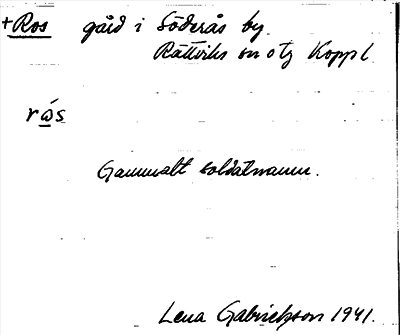 +Ros gård i Söderås by
Rättviks sn o tg Koppl.
rώ̲s
Gammalt soldatnamn.
Lena Gabrielsson 1941.